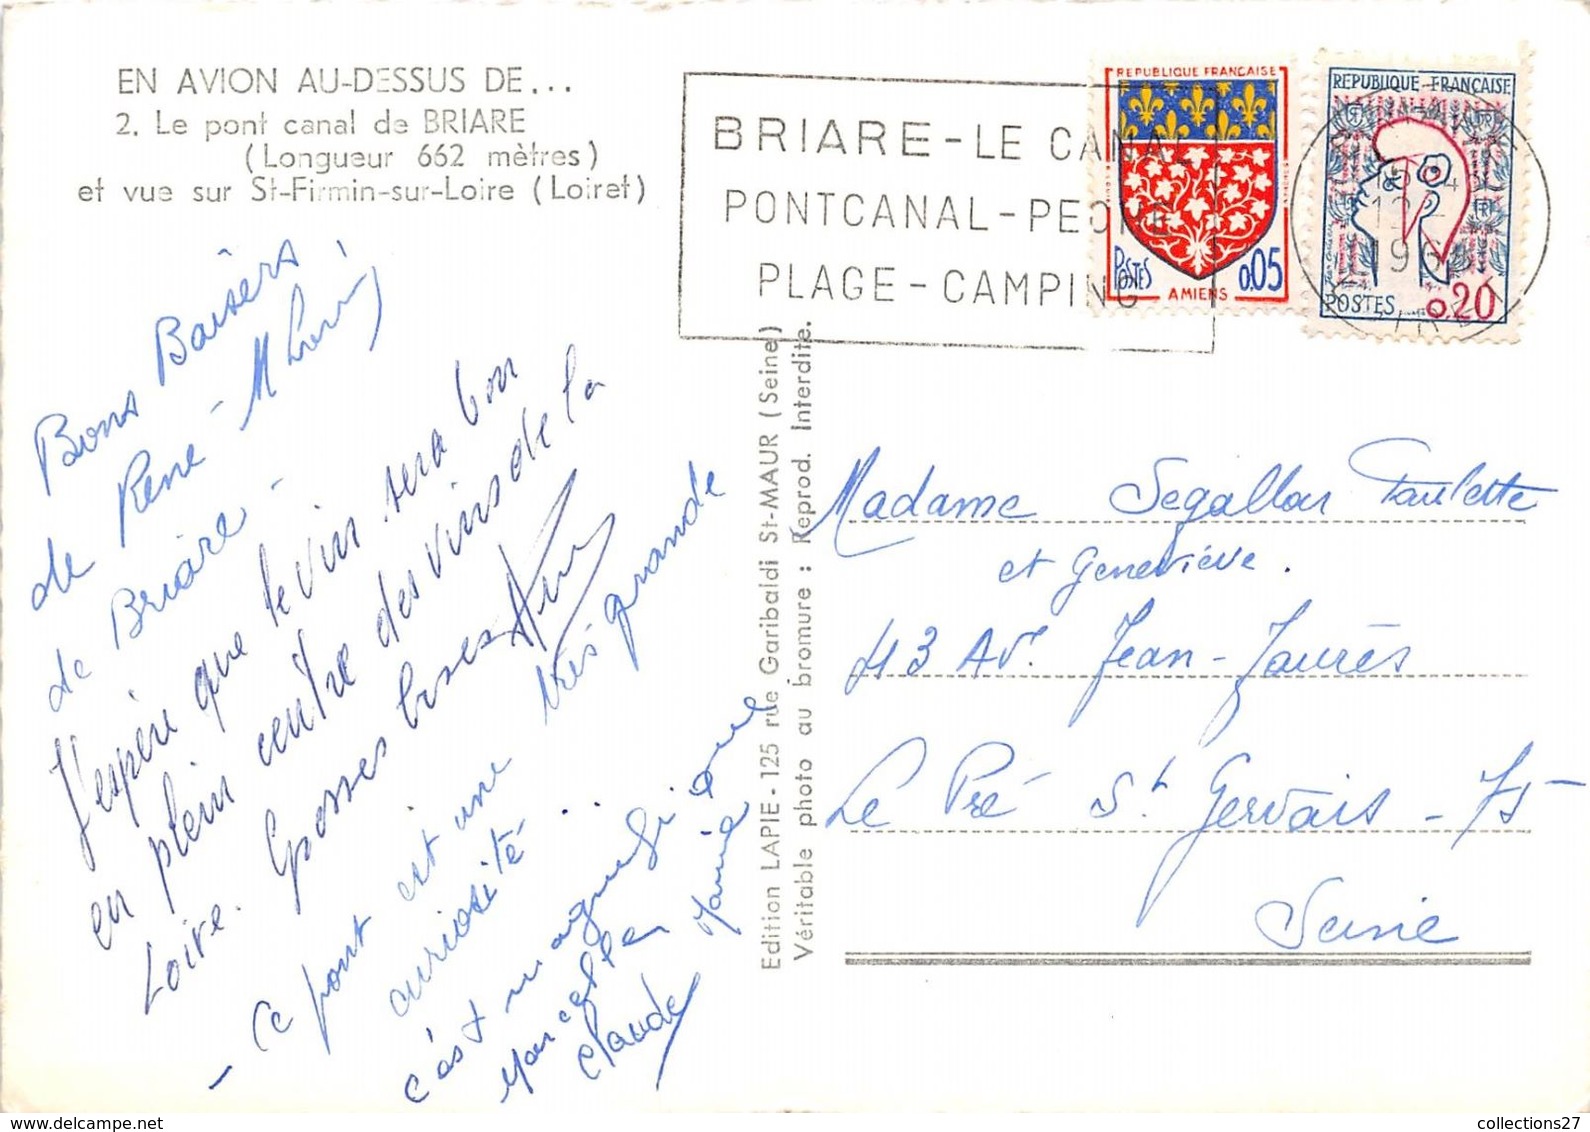 EN AVION AU-DESSUS DE...
2. Le pont canal de BRIARE
(Longueur 662 mètres)
et vue sur St-Firmin-sur-Loire (Loiret)
BRIARE - LE CANAL
PONTCANAL - PECHE
PLAGE - CAMPING
REPUBLIQUE FRANÇAISE
POSTES
0,05
AMIENS
REPUBLIQUE - FRANÇAISE
POSTES
0,20
Bons Baisers
de René - M
de Briare -
J'espère que le vin sera bon
en plein centre des vins de la
Loire. Grosses bises
- Ce pont est une très grande
curiosité ...
c'est magnifique
Marcelle Marie
Claude
Edition LAPIE - 125 rue Garibaldi St-MAUR (Seine)
Véritable photo au bromure : Reprod. Interdite.
Madame Segallou Paulette
et Geneviève.
43 Av. Jean-Jaurès
Le Pré St Gervais - 75
Seine
collections27